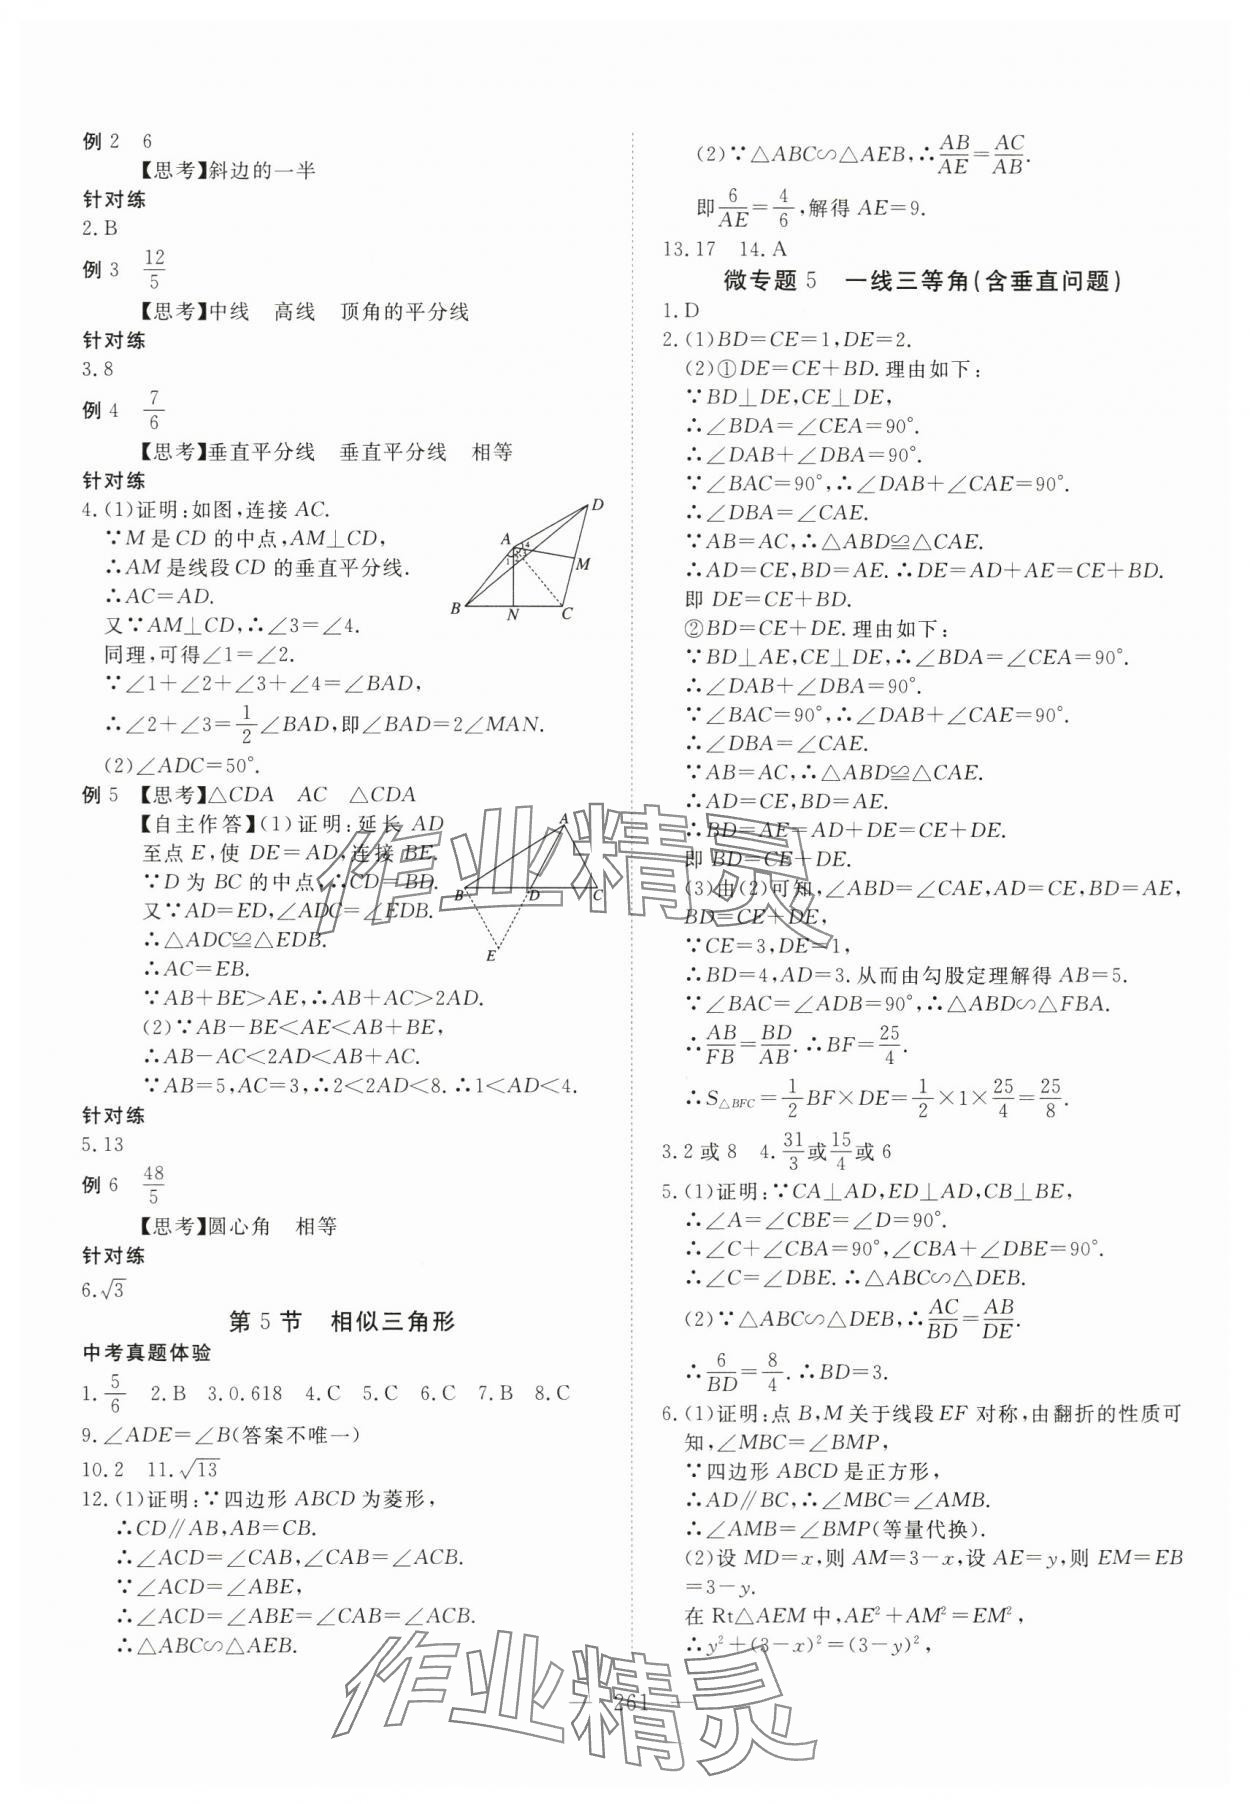 例2 6
【思考】斜边的一半
针对练
2.B
例3 12/5
【思考】中线 高线 顶角的平分线
针对练
3.8
例4 7/6
【思考】垂直平分线 垂直平分线 相等
针对练
4.(1)证明:如图,连接AC.
∵M是CD的中点,AM⊥CD,
∴AM是线段CD的垂直平分线.
∴AC=AD.
又∵AM⊥CD,∴∠3=∠4.
同理,可得∠1=∠2.
∵∠1+∠2+∠3+∠4=∠BAD,
∴∠2+∠3=1/2∠BAD,即∠BAD=2∠MAN.
(2)∠ADC=50°.
A B N C M D
例5 【思考】△CDA AC △CDA
【自主作答】(1)证明:延长AD
至点E,使DE=AD,连接BE.
∵D为BC的中点,∴CD=BD.
又∵AD=ED,∠ADC=∠EDB.
∴△ADC≌△EDB.
∴AC=EB.
∵AB+BE>AE,∴AB+AC>2AD.
(2)∵AB-BE<AE<AB+BE,
∴AB-AC<2AD<AB+AC.
∵AB=5,AC=3,∴2<2AD<8.∴1<AD<4.
A B D C E
针对练
5.13
例6 48/5
【思考】圆心角 相等
针对练
6.√3
第5节 相似三角形
中考真题体验
1.5/6 2.B 3.0.618 4.C 5.C 6.C 7.B 8.C
9.∠ADE=∠B(答案不唯一)
10.2 11.√13
12.(1)证明:∵四边形ABCD为菱形,
∴CD∥AB,AB=CB.
∴∠ACD=∠CAB,∠CAB=∠ACB.
∵∠ACD=∠ABE,
∴∠ACD=∠ABE=∠CAB=∠ACB.
∴△ABC∽△AEB.
(2)∵△ABC∽△AEB,∴AB/AE=AC/AB.
即6/AE=4/6,解得AE=9.
13.17 14.A
微专题5 一线三等角(含垂直问题)
1.D
2.(1)BD=CE=1,DE=2.
(2)①DE=CE+BD.理由如下:
∵BD⊥DE,CE⊥DE,
∴∠BDA=∠CEA=90°.
∴∠DAB+∠DBA=90°.
∵∠BAC=90°,∴∠DAB+∠CAE=90°.
∴∠DBA=∠CAE.
∵AB=AC,∴△ABD≌△CAE.
∴AD=CE,BD=AE.∴DE=AD+AE=CE+BD.
即DE=CE+BD.
②BD=CE+DE.理由如下:
∵BD⊥AE,CE⊥DE,∴∠BDA=∠CEA=90°.
∴∠DAB+∠DBA=90°.
∵∠BAC=90°,∴∠DAB+∠CAE=90°.
∴∠DBA=∠CAE.
∵AB=AC,∴△ABD≌△CAE.
∴AD=CE,BD=AE.
∴BD=AE=AD+DE=CE+DE.
即BD=CE+DE.
(3)由(2)可知,∠ABD=∠CAE,AD=CE,BD=AE,
BD=CE+DE,
∵CE=3,DE=1,
∴BD=4,AD=3.从而由勾股定理解得AB=5.
∵∠BAC=∠ADB=90°,∴△ABD∽△FBA.
∴AB/FB=BD/AB.∴BF=25/4.
∴S△BFC=1/2BF×DE=1/2×1×25/4=25/8.
3.2或8 4.31/3或15/4或6
5.(1)证明:∵CA⊥AD,ED⊥AD,CB⊥BE,
∴∠A=∠CBE=∠D=90°.
∴∠C+∠CBA=90°,∠CBA+∠DBE=90°.
∴∠C=∠DBE.∴△ABC∽△DEB.
(2)∵△ABC∽△DEB,∴AC/BD=AB/DE.
∴6/BD=8/4.∴BD=3.
6.(1)证明:点B,M关于线段EF对称,由翻折的性质可
知,∠MBC=∠BMP,
∵四边形ABCD是正方形,
∴AD∥BC,∴∠MBC=∠AMB.
∴∠AMB=∠BMP(等量代换).
(2)设MD=x,则AM=3-x,设AE=y,则EM=EB
=3-y.
在Rt△AEM中,AE²+AM²=EM²,
∴y²+(3-x)²=(3-y)²,
— 261 —
作业精灵
作业精灵